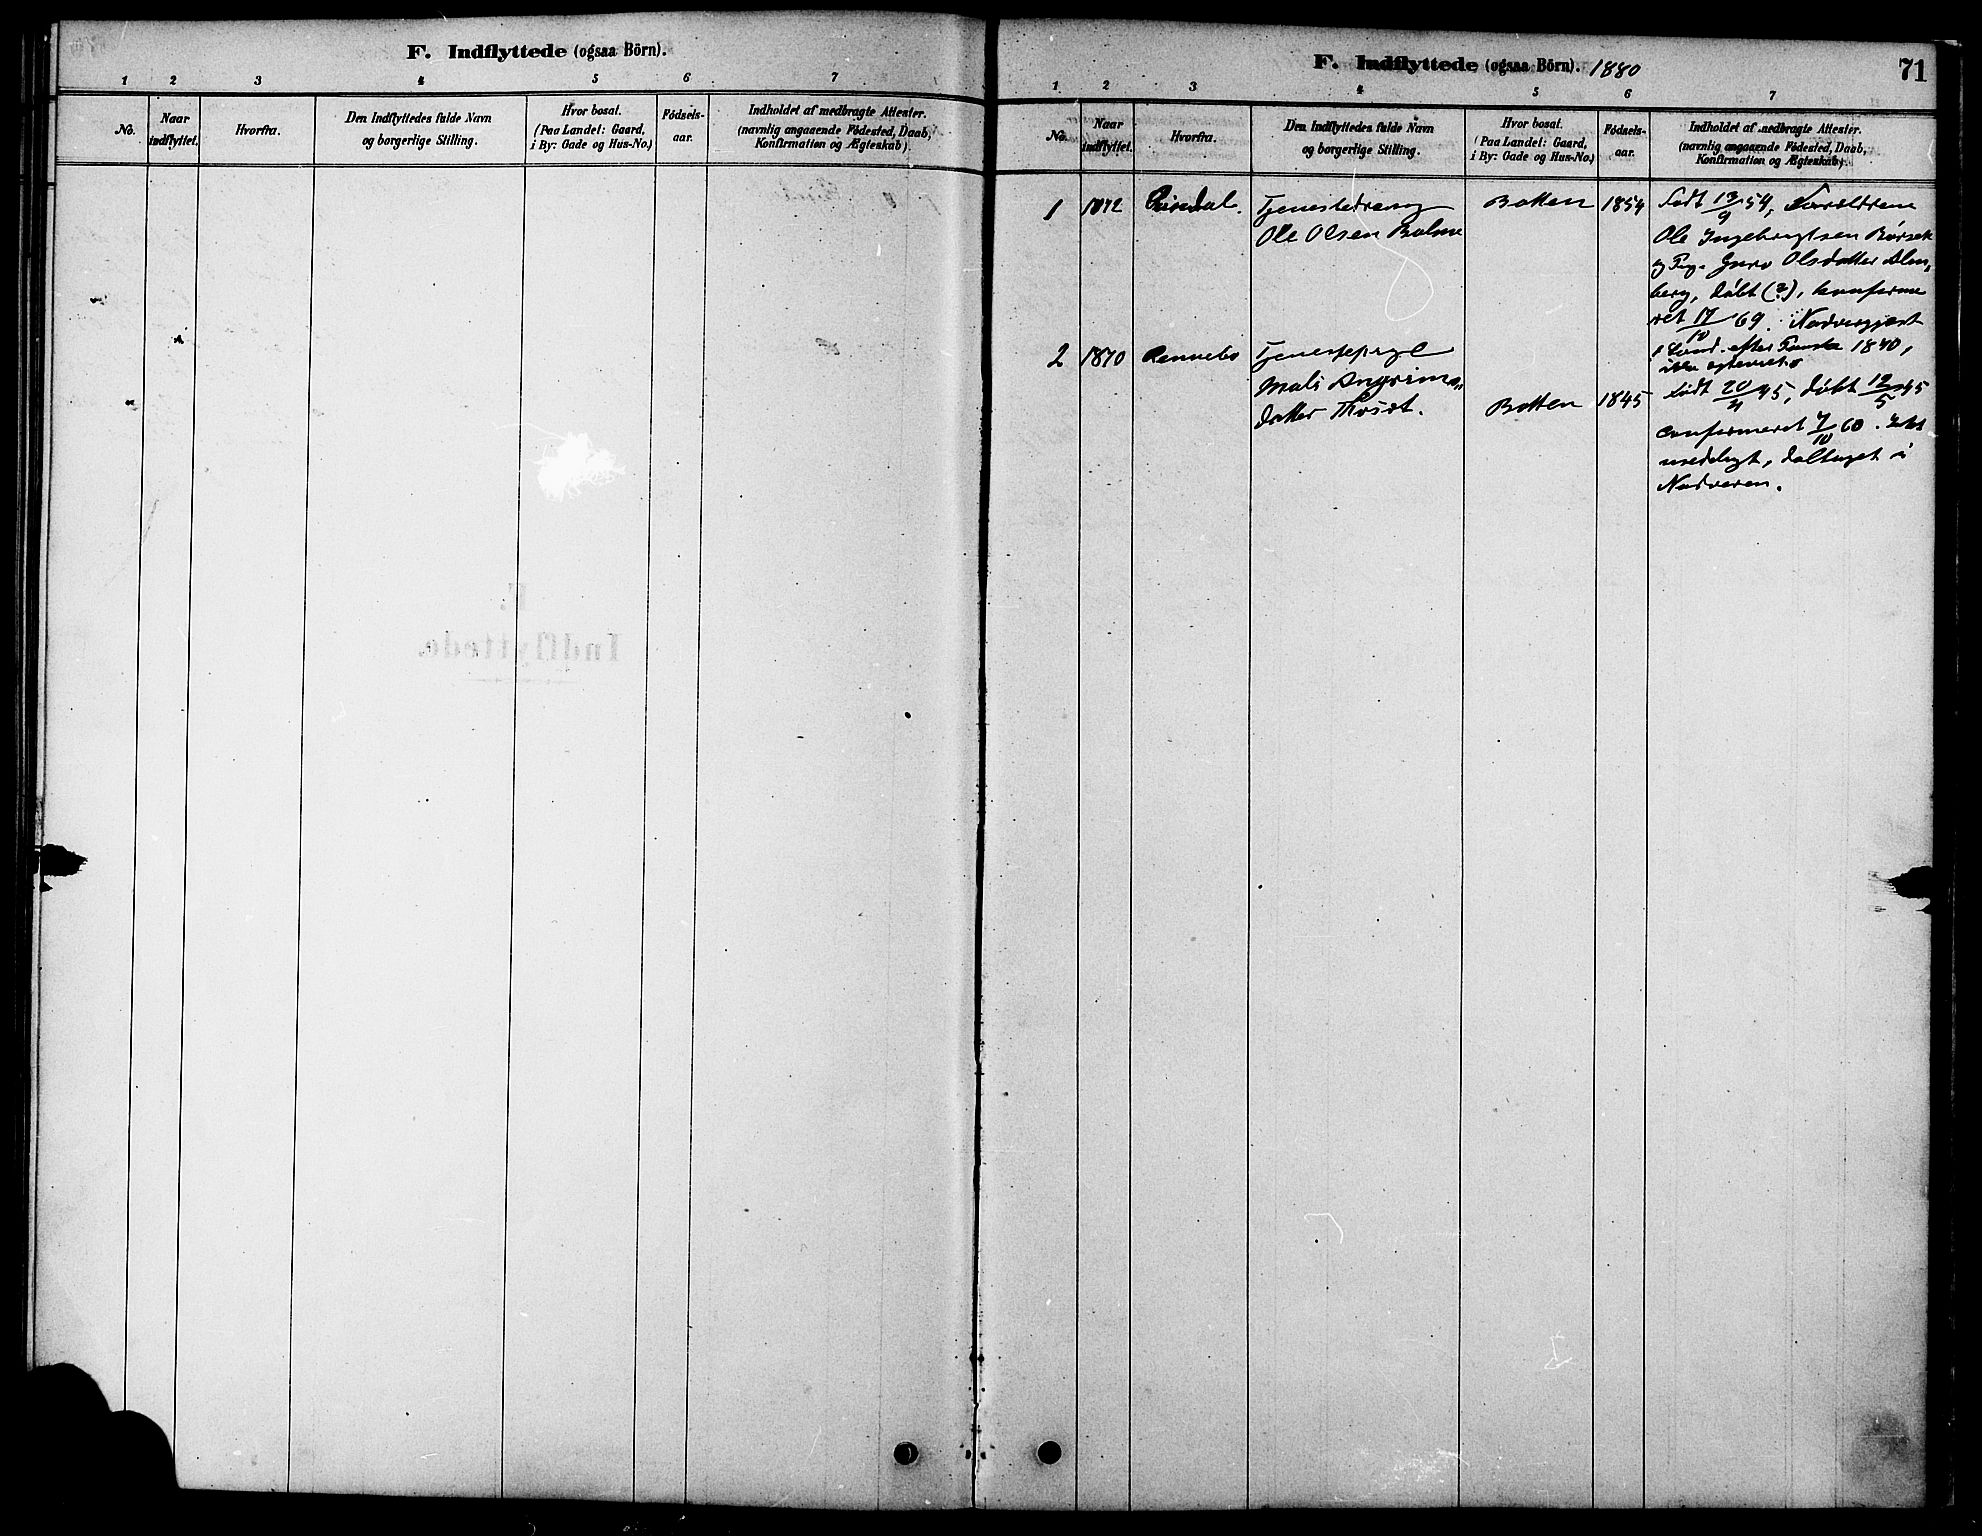 F. Indflyttede (ogsaa Börn).
1 2 3 4 5 6 7
No.
Naar
indflyttet.
Hvorfra.
Den Indflyttedes fulde Navn
og borgerlige Stilling.
Hvor bosat.
(Paa Landet: Gaard,
i By: Gade og Hus-No.)
Födsels-
aar.
Indholdet af medbragte Attester.
(navnlig angaaende Födested, Daab,
Konfirmation og Ægteskab).
F. Indflyttede (ogsaa Börn). 1880
71
1 2 3 4 5 6 7
No.
Naar
indflyttet.
Hvorfra.
Den Indflyttedes fulde Navn
og borgerlige Stilling.
Hvor bosat.
(Paa Landet: Gaard,
i By: Gade og Hus-No.)
Födsels-
aar.
Indholdet af medbragte Attester.
(navnlig angaaende Födested, Daab,
Konfirmation og Ægteskab).
1
1872
Rindal.
Tjenestedreng
Ole Olsen Bolme
Botten
1854
Født 13/9 54, Forældrene
Ole Ingebrigtsen
og Guro Olsdatter
berg, døbt (?), konfirme
ret 17/10 69. Nadvergjest
efter 1870,
2
1870
Rennebo
Tjenestepige
Mali Angrims
datter Thoset.
Botten
1845
Født 20/4 45, døbt 12/5 45
confirmeret 7/10 60.
usedeligt, deltaget i
Nadveren.
F.
Indflyttede.